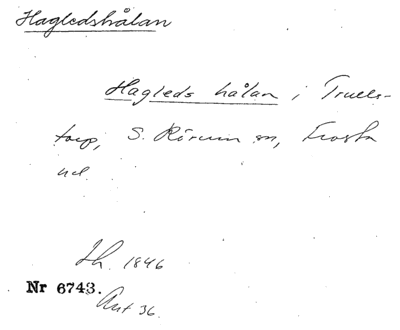 Hagledshålan
Hagleds hålan i Truels-
torp, S. Rörum sn, Frosta
hd.
Lh. 1846
Nr 6743.
Ant 36.